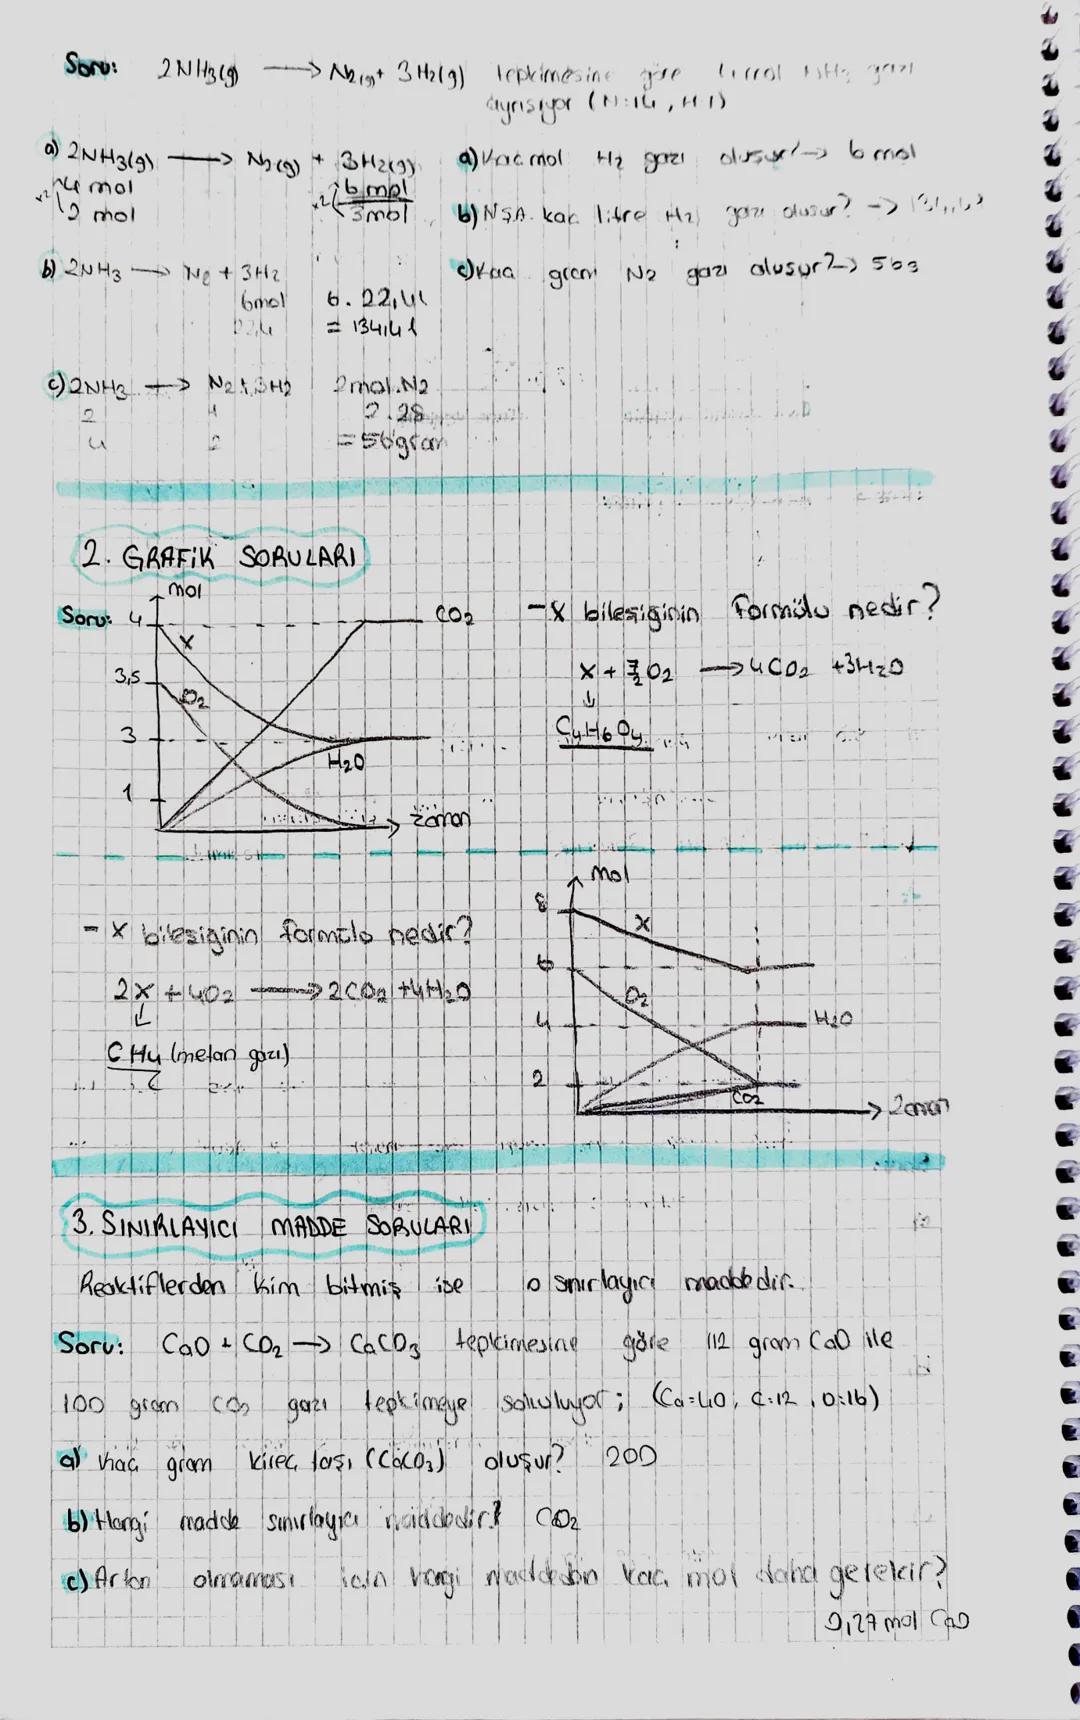 Soru: 2NH3(g) → N2(g) + 3H2(g) tepkimesine göre 4 mol NH3 gazı
ayrışıyor (N:14, H:1)
a) 2NH3(g) → N2(g) + 3H2(g)
4 mol 6 mol
x2 2 mol x2 3mol
a) Kaç mol H2 gazı oluşur? → 6 mol
b) NŞA kaç litre H2 gazı oluşur? →
b) 2NH3 → N2 + 3H2
6mol 6. 22,4L
22,4 = 134,4 l
c) Kaç gram N2 gazı oluşur? → 56g
c) 2NH3 → N2 + 3H2 2mol N2
2 4 2.28
4 2 = 56 gram
2. GRAFİK SORULARI
Soru:
mol
4
X
CO2
3,5
O2
3
H2O
1
zaman
- X bileşiğinin formülü nedir?
X + 7/2 O2 → 4CO2 + 3H2O
↓
C4H6O4
- X bileşiğinin formülü nedir?
2X + 4O2 → 2CO2 + 4H2O
↓
CH4 (metan gazı)
mol
8
X
6
O2
4
H2O
2
CO2
zaman
3. SINIRLAYICI MADDE SORULARI
Reaktiflerden kim bitmiş ise o sınırlayıcı maddedir.
Soru: CaO + CO2 → CaCO3 tepkimesine göre 112 gram CaO ile
100 gram CO2 gazı tepkimeye sokuluyor; (Ca=40, C:12, O:16)
a) Kaç gram kireç taşı (CaCO3) oluşur? 200
b) Hangi madde sınırlayıcı maddedir? CO2
c) Artan olmaması için hangi maddeden kaç mol daha gerekir?
0,27 mol CaO